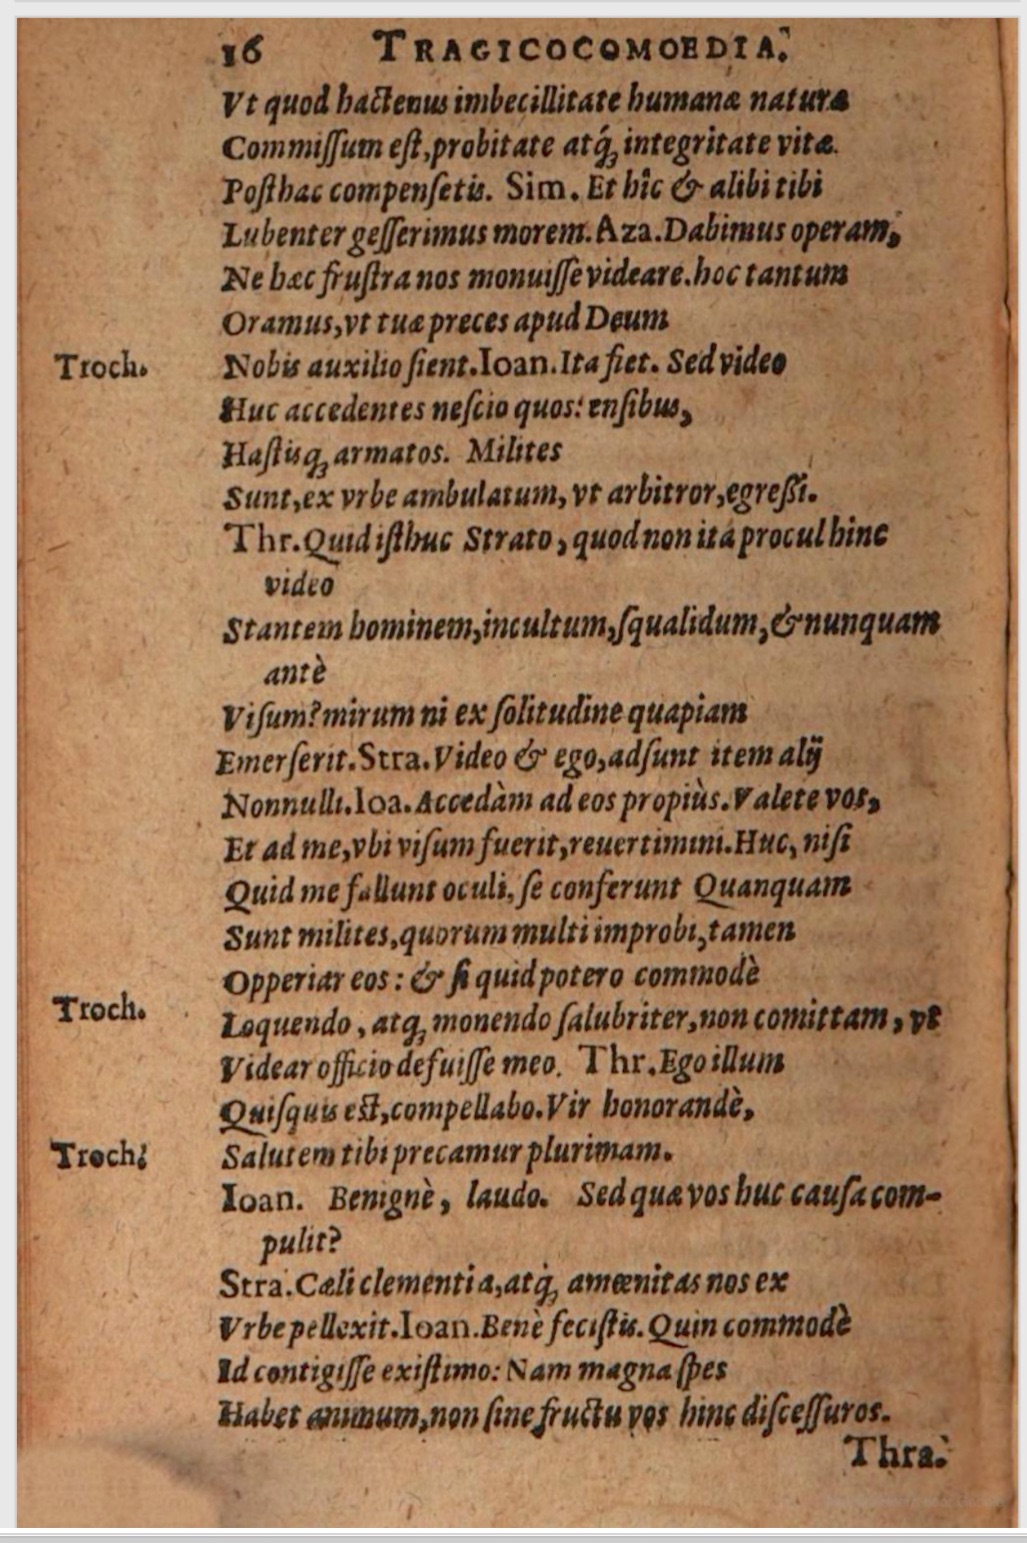 16 TRAGICOCOMOEDIA.
Vt quod hactenus imbecillitate humanæ naturæ
Commiſſum eſt, probitate atq́; integritate vitæ.
Poſthac compenſetis. Sim. Et hîc & alibi tibi
Lubenter geſſerimus morem. Aza. Dabimus operam,
Ne hæc fruſtra nos monuiſſe videare. hoc tantum
Oramus, vt tuæ preces apud Deum
Troch. Nobis auxilio ſient. Ioan. Ita fiet. Sed video
Huc accedentes neſcio quos: enſibus,
Haſtisq; armatos. Milites
Sunt, ex vrbe ambulatum, vt arbitror, egreßi.
Thr. Quid iſthuc Strato, quod non itá procul hinc
video
Stantem hominem, incultum, ſqualidum, & nunquam
antè
Viſum? mirum ni ex ſolitudine quapiam
Emerſerit. Stra. Video & ego, adſunt item alij
Nonnulli. Ioa. Accedàm ad eos propiùs. Valete vos,
Et ad me, vbi viſum fuerit, reuertimini. Huc, niſi
Quid me fallunt oculi, ſe conferunt Quanquam
Sunt milites, quorum multi improbi, tamen
Opperiar eos: & ſi quid potero commodè
Troch. Loquendo, atq; monendo ſalubriter, non comittam, vt
Videar officio defuiſſe meo. Thr. Ego illum
Quiſquis eſt, compellabo. Vir honorandè,
Troch. Salutem tibi precamur plurimam.
Ioan. Benignè, laudo. Sed quæ vos huc cauſa com-
pulit?
Stra. Cæli clementia, atq́; amœnitas nos ex
Vrbe pellexit. Ioan. Benè feciſtis. Quin commodè
Id contigiſſe exiſtimo: Nam magna ſpes
Habet animum, non ſine fructu vos hinc diſceſſuros.
Thra.